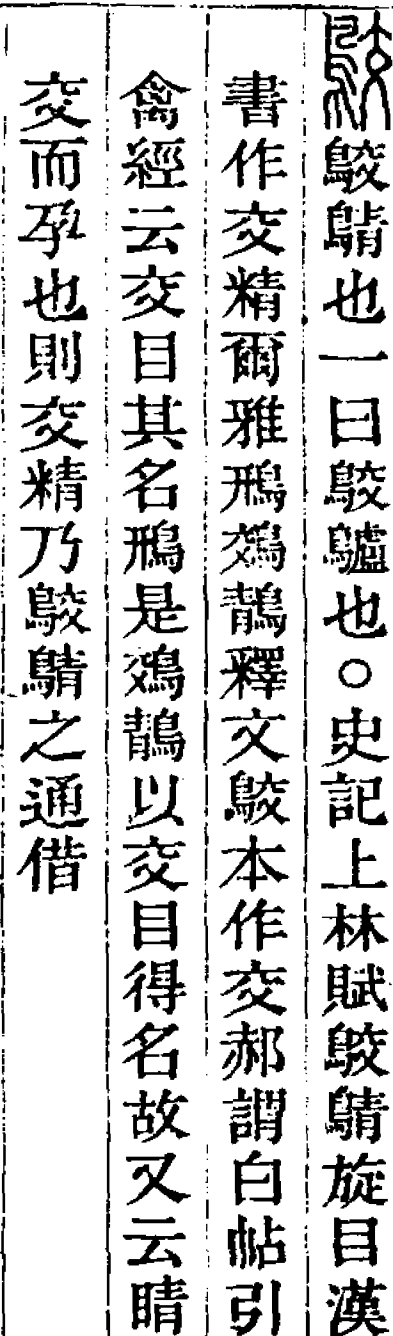 䴔䴔鶄也一曰䴔鸕也○史記上林賦䴔鶄旋目漢
書作交精爾雅鳽鵁鶄釋文䴔本作交郝謂白帖引
禽經云交目其名鳽是鵁鶄以交目得名故又云睛
交而孕也則交精乃䴔鶄之通借